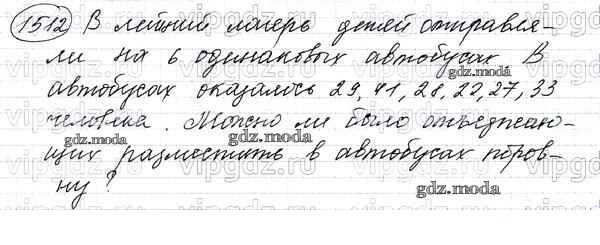 1512 В летний лагерь детей отправля-
ли на 6 одинаковых автобусах В
автобусах оказалось 29, 41, 28, 22, 27, 33
человека. Можно ли было отъезжаю-
щих разместить в автобусах поров-
ну?
gdz.moda
gdz.moda
gdz.moda
gdz.moda
gdz.moda